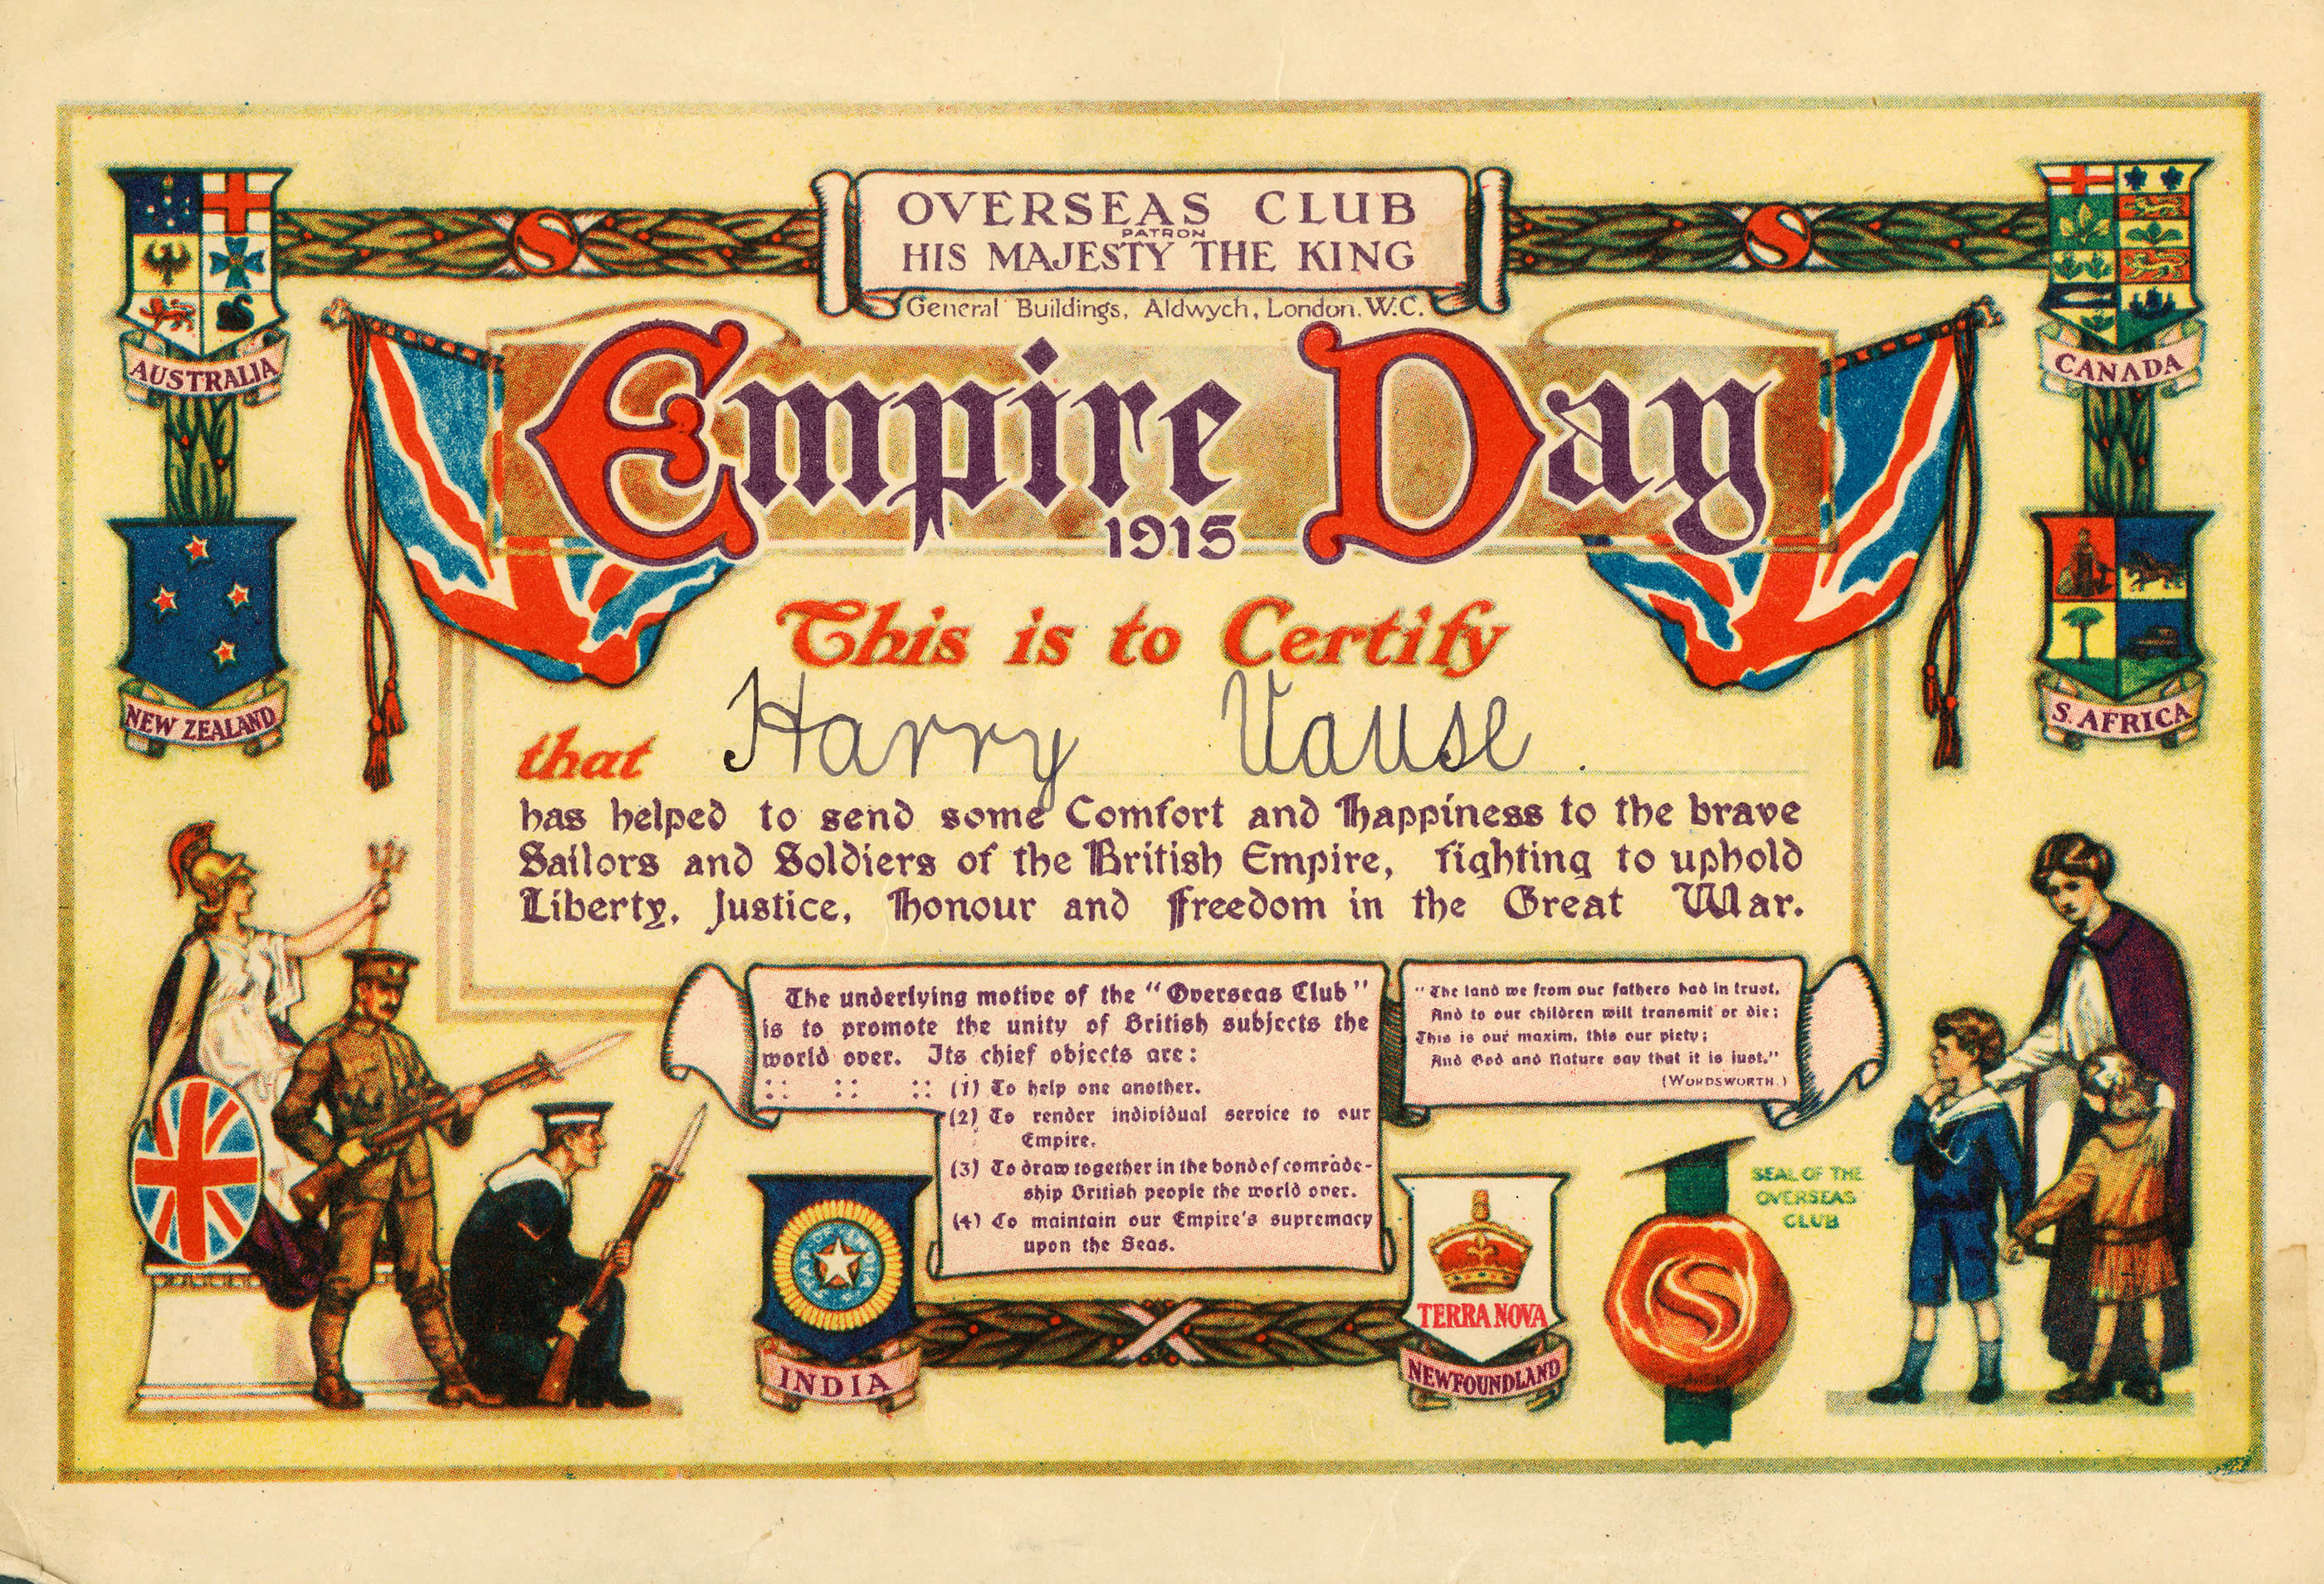 OVERSEAS CLUB
PATRON
HIS MAJESTY THE KING
General Buildings, Aldwych, London. W.C.
Empire Day
1915
AUSTRALIA
CANADA
NEW ZEALAND
S. AFRICA
This is to Certify
that Harry Vause.
has helped to send some Comfort and Happiness to the brave
Sailors and Soldiers of the British Empire, fighting to uphold
Liberty, Justice, Honour and Freedom in the Great War.
The underlying motive of the "Overseas Club"
is to promote the unity of British subjects the
world over. Its chief objects are:
:: :: :: (1) To help one another.
(2) To render individual service to our
Empire.
(3) To draw together in the bond of comrade-
ship British people the world over.
(4) To maintain our Empire's supremacy
upon the Seas.
"The land we from our fathers had in trust,
And to our children will transmit or die;
This is our maxim, this our piety;
And God and Nature say that it is just."
(WORDSWORTH.)
SEAL OF THE
OVERSEAS
CLUB
S
S
S
INDIA
TERRA NOVA
NEWFOUNDLAND